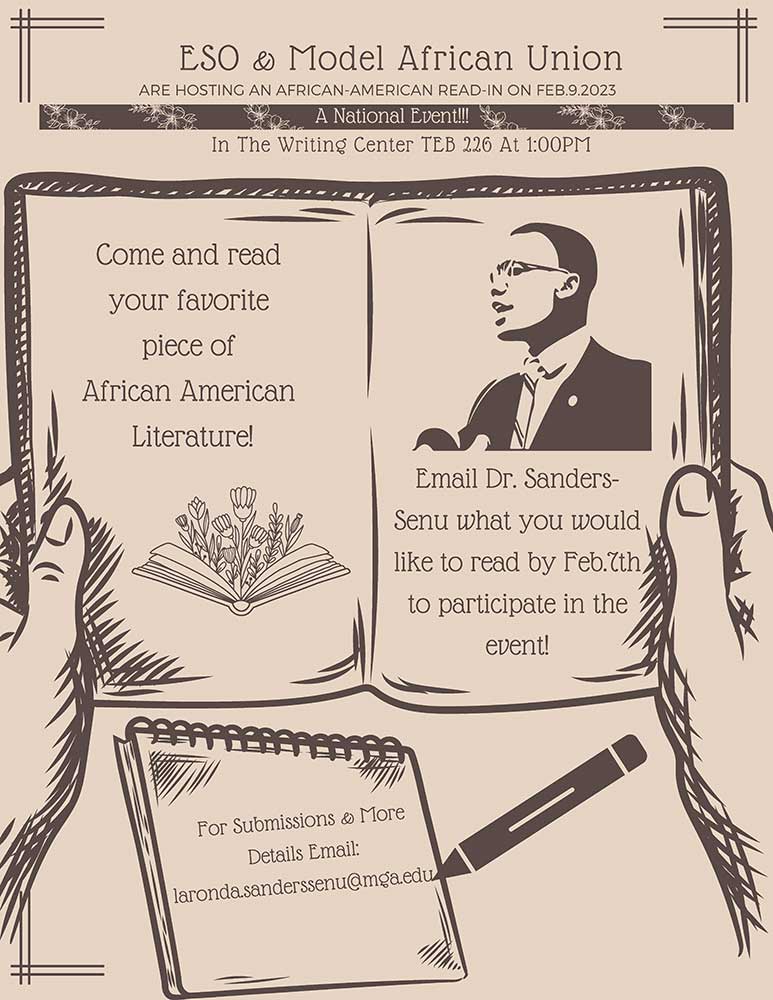 ESO & Model African Union
ARE HOSTING AN AFRICAN-AMERICAN READ-IN ON FEB.9.2023
A National Event!!!
In The Writing Center TEB 226 At 1:00PM
Come and read
your favorite
piece of
African American
Literature!
Email Dr. Sanders-
Senu what you would
like to read by Feb.7th
to participate in the
event!
For Submissions & More
Details Email:
laronda.sanderssenu@mga.edu